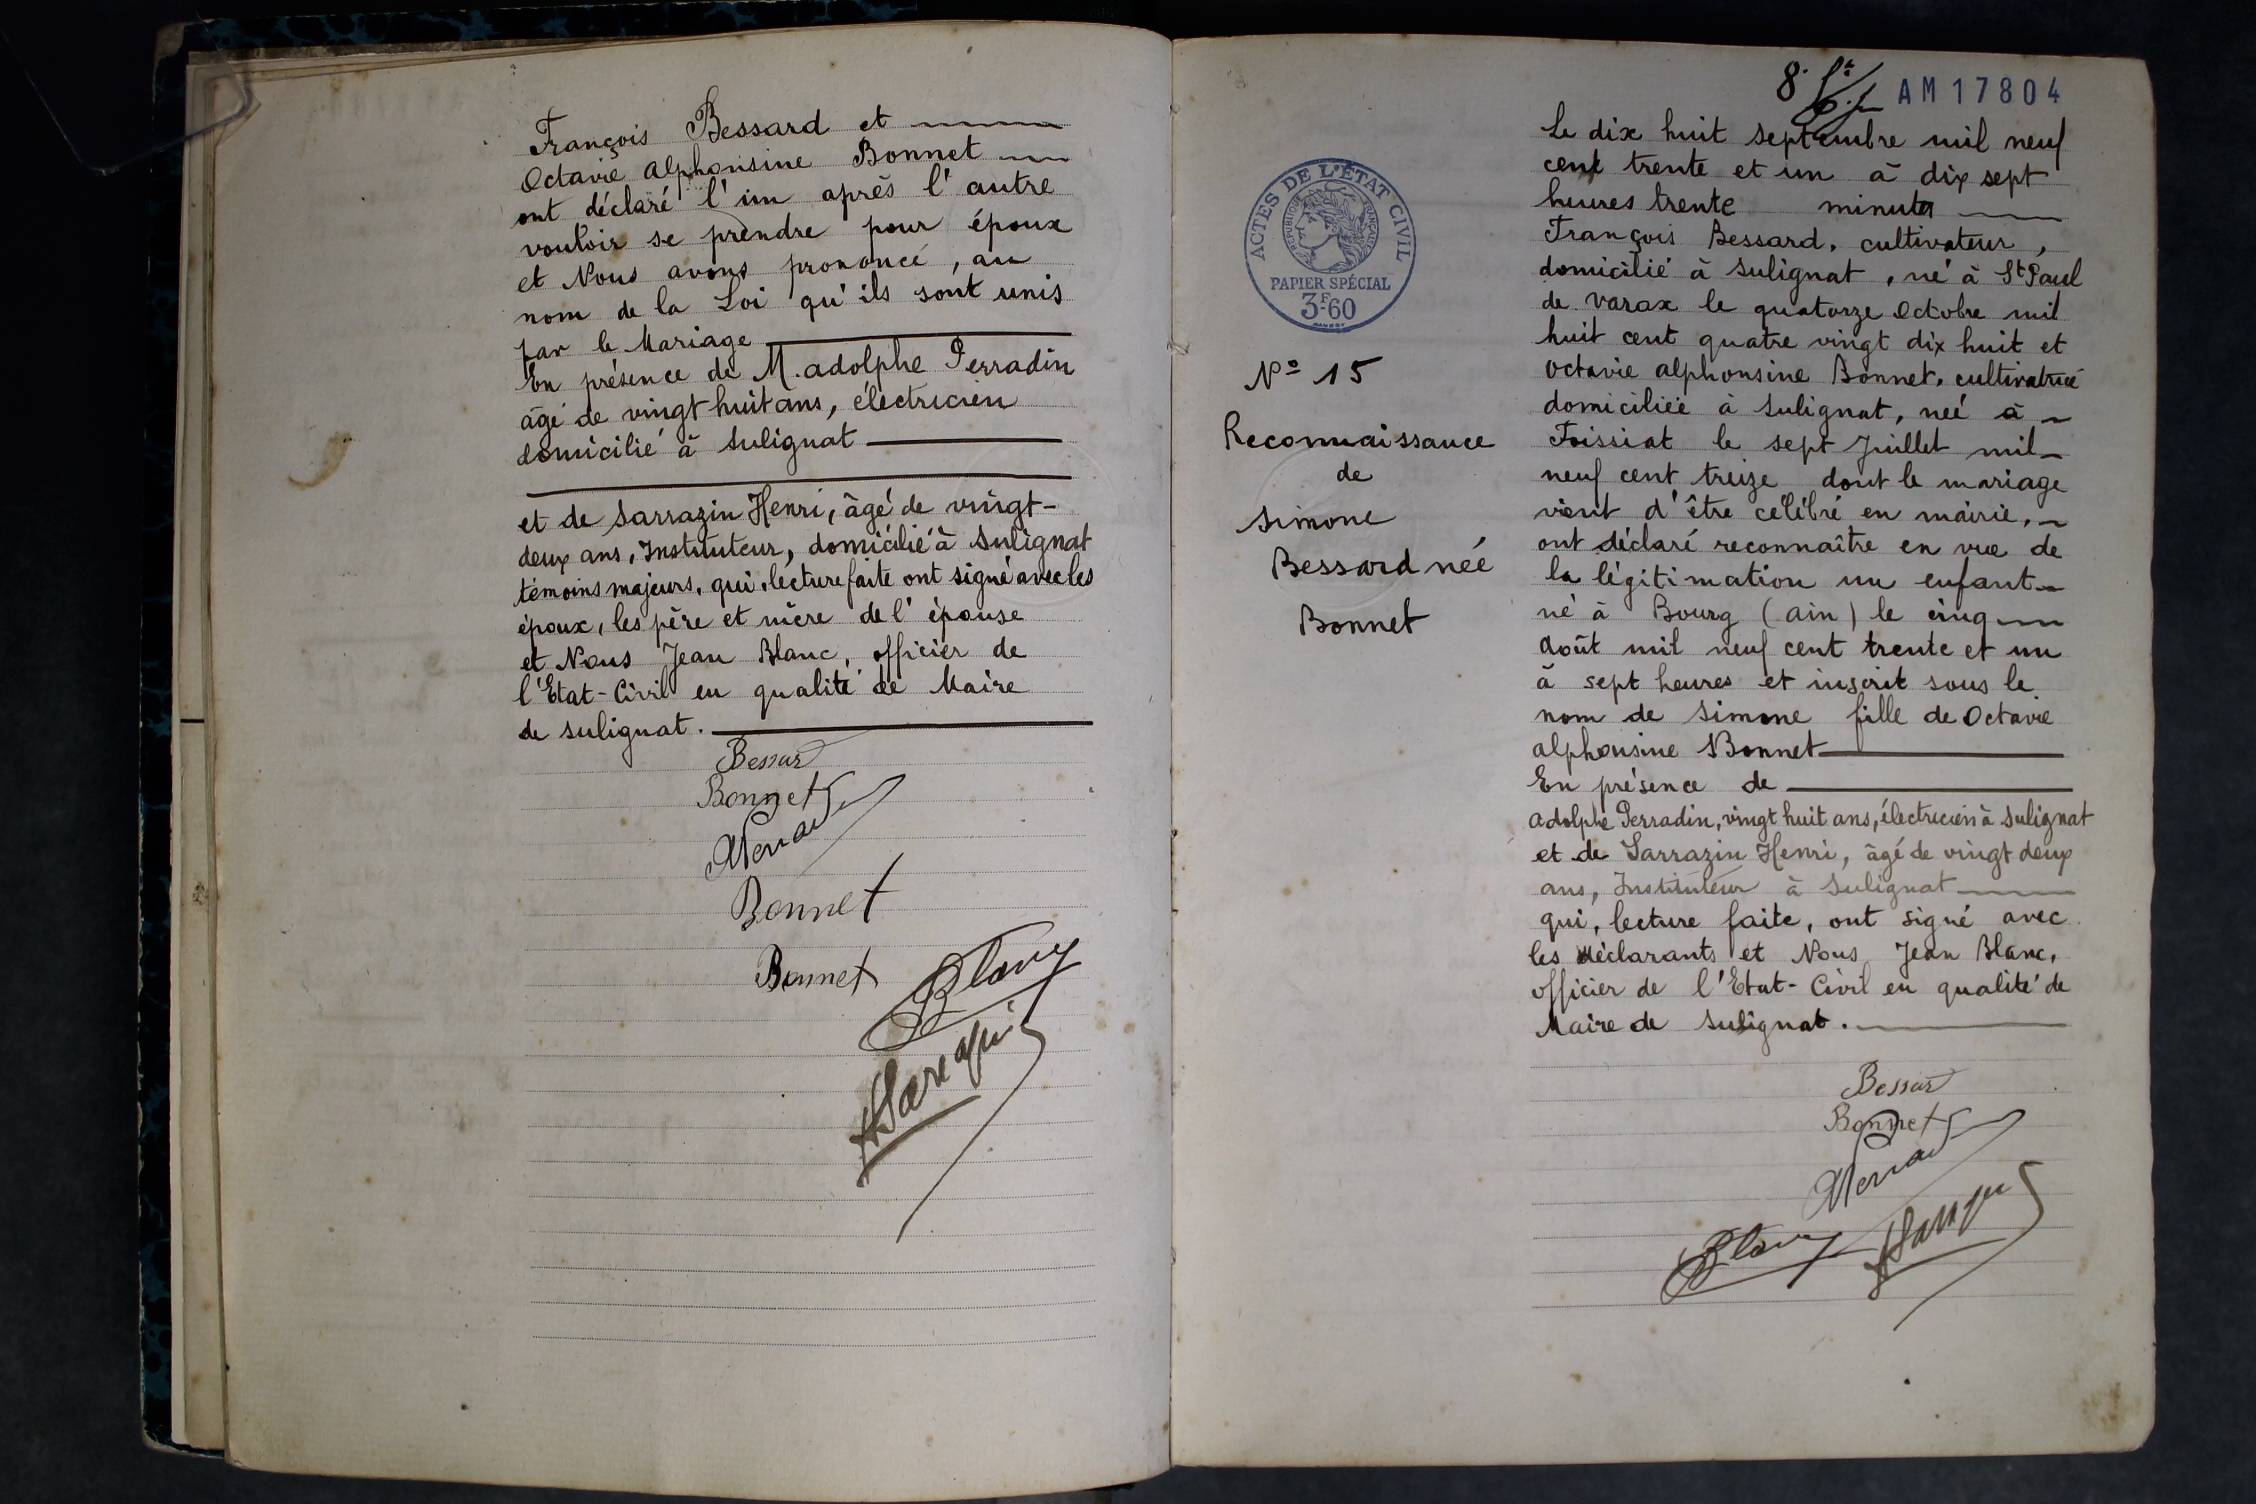 François Bessard et
Octavie Alphonsine Bonnet
ont déclaré l'un après l'autre
vouloir se prendre pour époux
et Nous avons prononcé, au
nom de la Loi qu'ils sont unis
par le Mariage
En présence de M. adolphe Perradin
âgé de vingt huit ans, électricien
domicilié à Sulignat
et de Sarrazin Henri, âgé de vingt-
deux ans, Instituteur, domicilié à Sulignat
témoins majeurs, qui, lecture faite ont signé avec les
époux, les père et mère de l'épouse
et Nous Jean Blanc, officier de
l'Etat-Civil en qualité de Maire
de Sulignat.
Bessard
Bonnet
Bonnet
Bonnet
8
AM 17804
ACTES DE L'ÉTAT CIVIL
RÉPUBLIQUE FRANÇAISE
PAPIER SPÉCIAL
3F60
N° 15
Reconnaissance
de
Simone
Bessard née
Bonnet
Le dix huit septembre mil neuf
cent trente et un à dix sept
heures trente minutes
François Bessard, cultivateur,
domicilié à Sulignat, né à St Paul
de Varax le quatorze Octobre mil
huit cent quatre vingt dix huit et
Octavie alphonsine Bonnet, cultivatrice
domiciliée à Sulignat, neé à
Foissiat le sept Juillet mil
neuf cent treize dont le mariage
vient d'être célébré en mairie,
ont déclaré reconnaître en vue de
la légitimation un enfant
né à Bourg (ain) le cinq
Août mil neuf cent trente et un
à sept heures et inscrit sous le
nom de Simone fille de Octavie
alphonsine Bonnet
En présence de
adolphe Perradin, vingt huit ans, électricien à Sulignat
et de Sarrazin Henri, âgé de vingt deux
ans, Instituteur à Sulignat
qui, lecture faite, ont signé avec
les déclarants et Nous Jean Blanc,
officier de l'Etat-Civil en qualité de
Maire de Sulignat.
Bessard
Bonnet